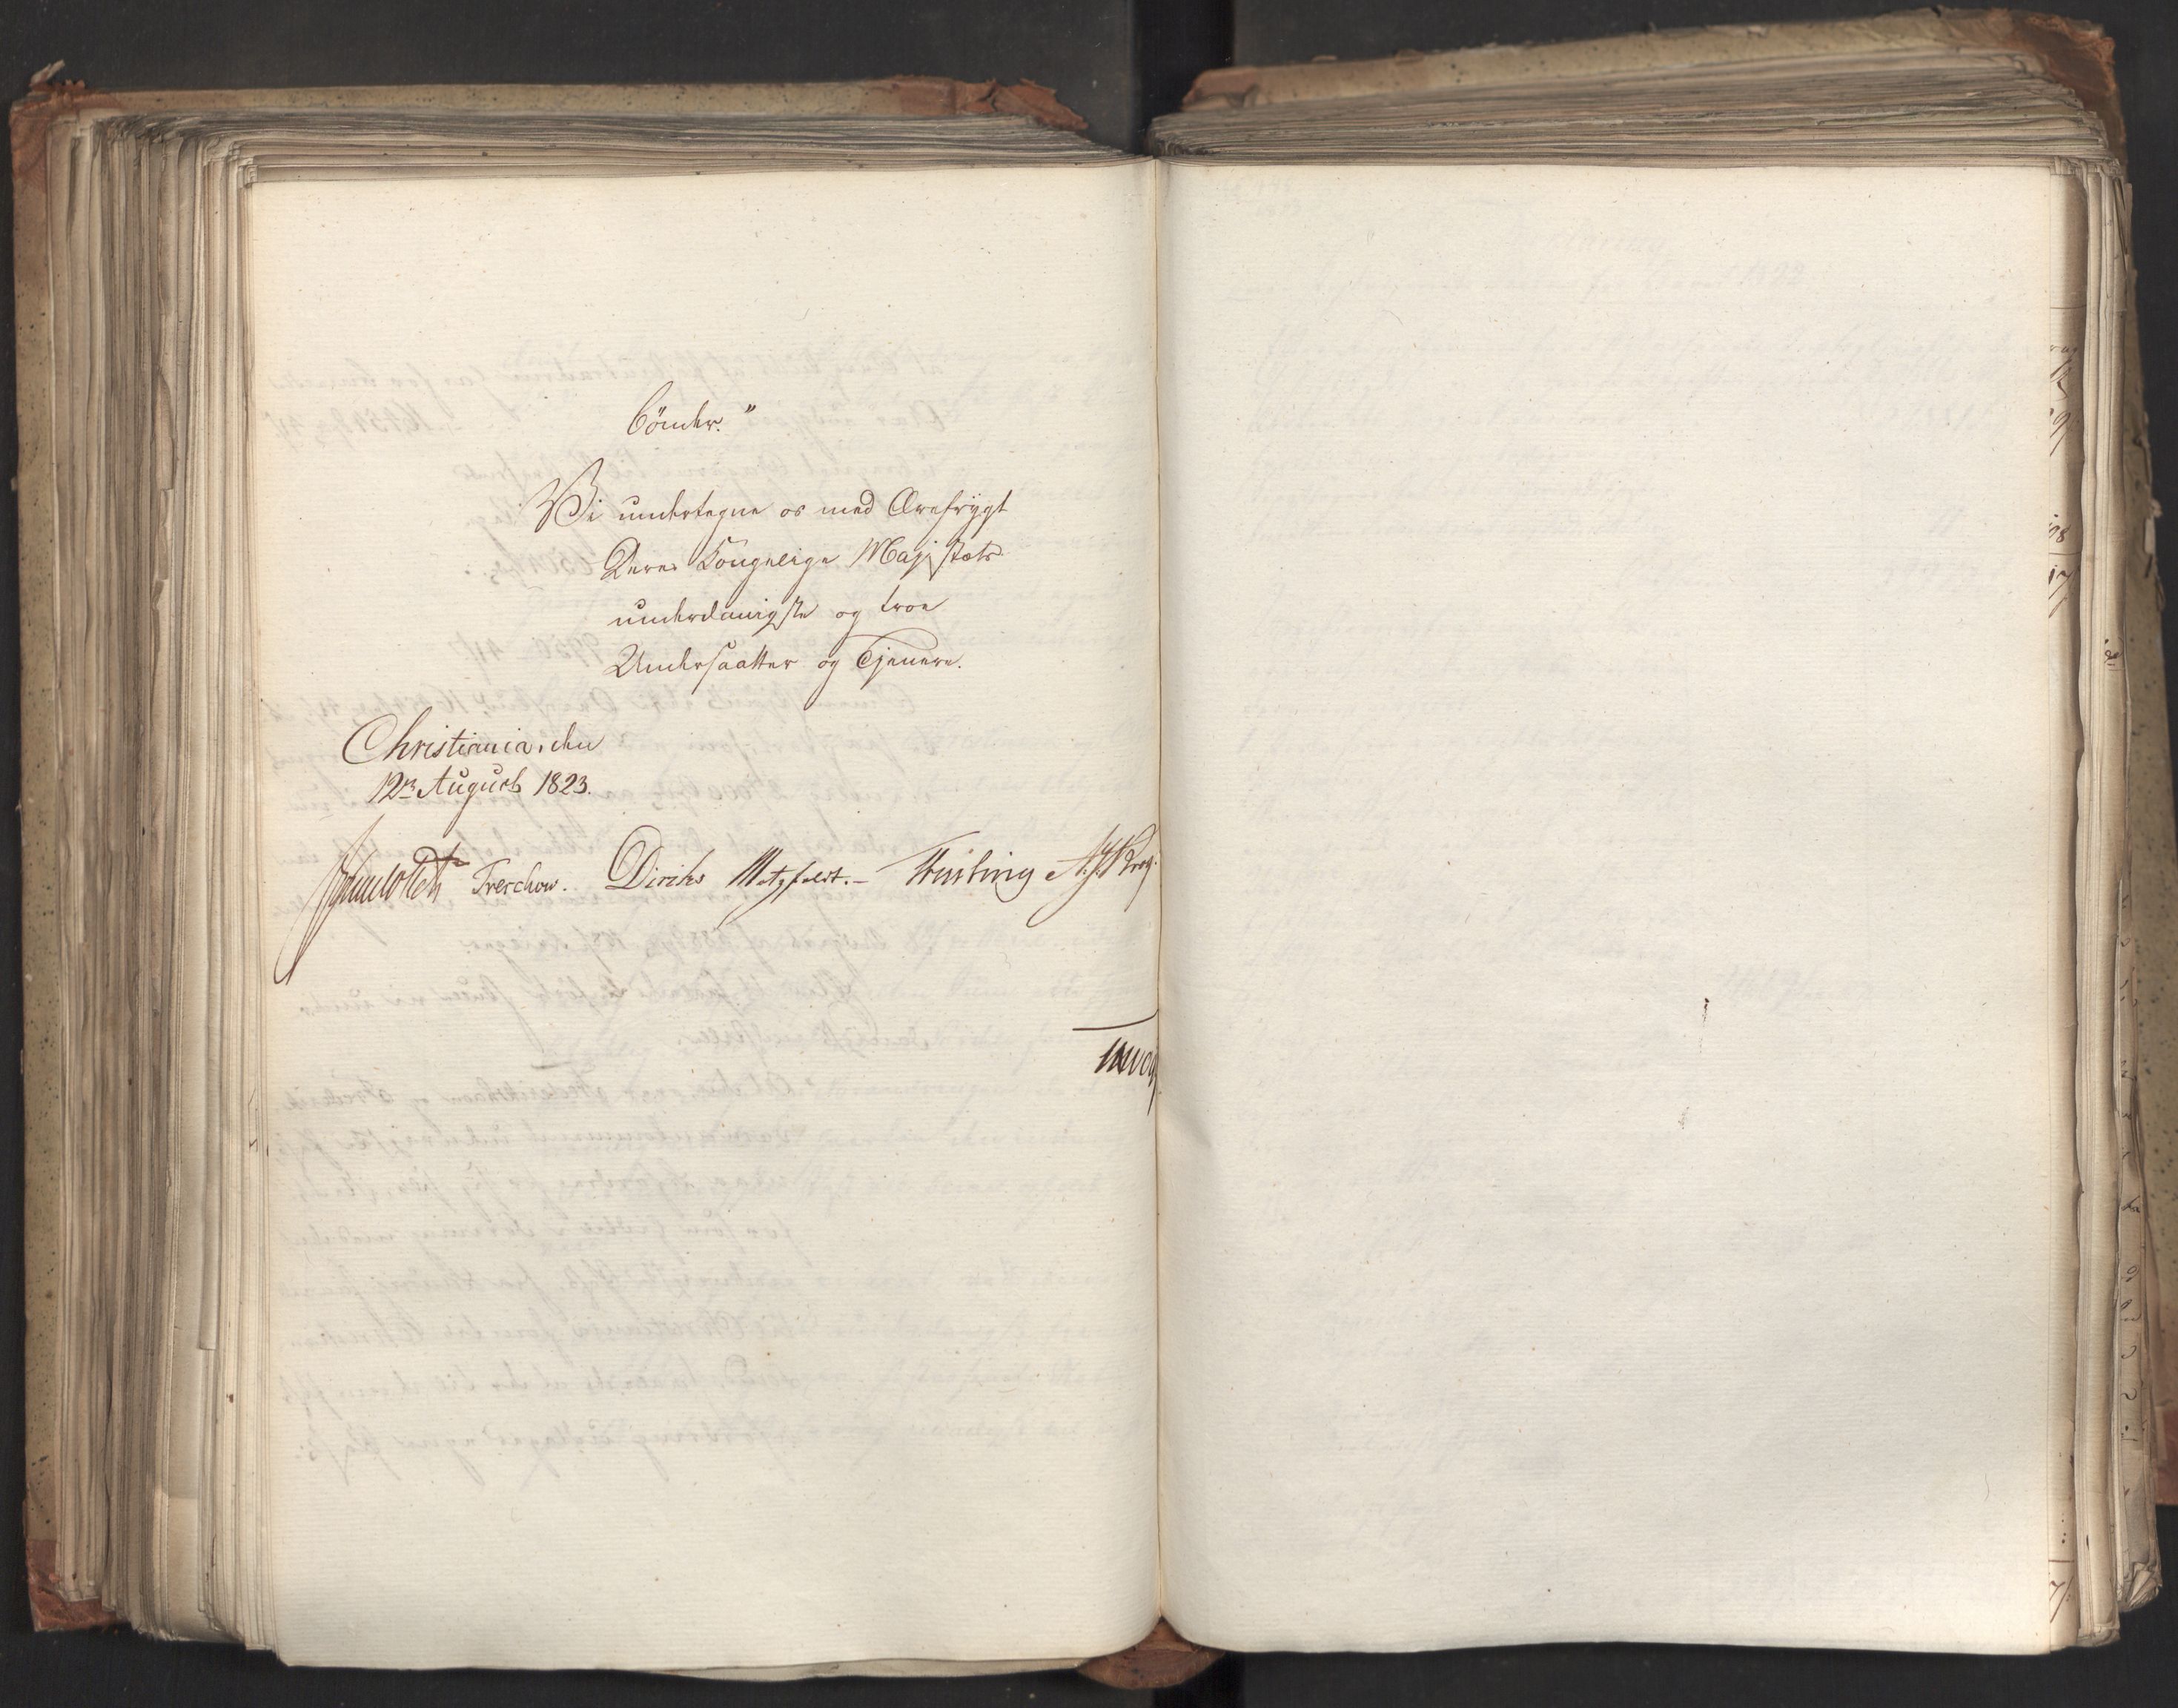 Bönder."
Vi undertegne os med Ærefrygt
Deres Kongelige Majestæts
underdanigste og troe
Undersaatter og Tjenere.
Christiania, den
12te August 1823.
Treschow. Diriks Motzfeldt.- A. J. Krog.